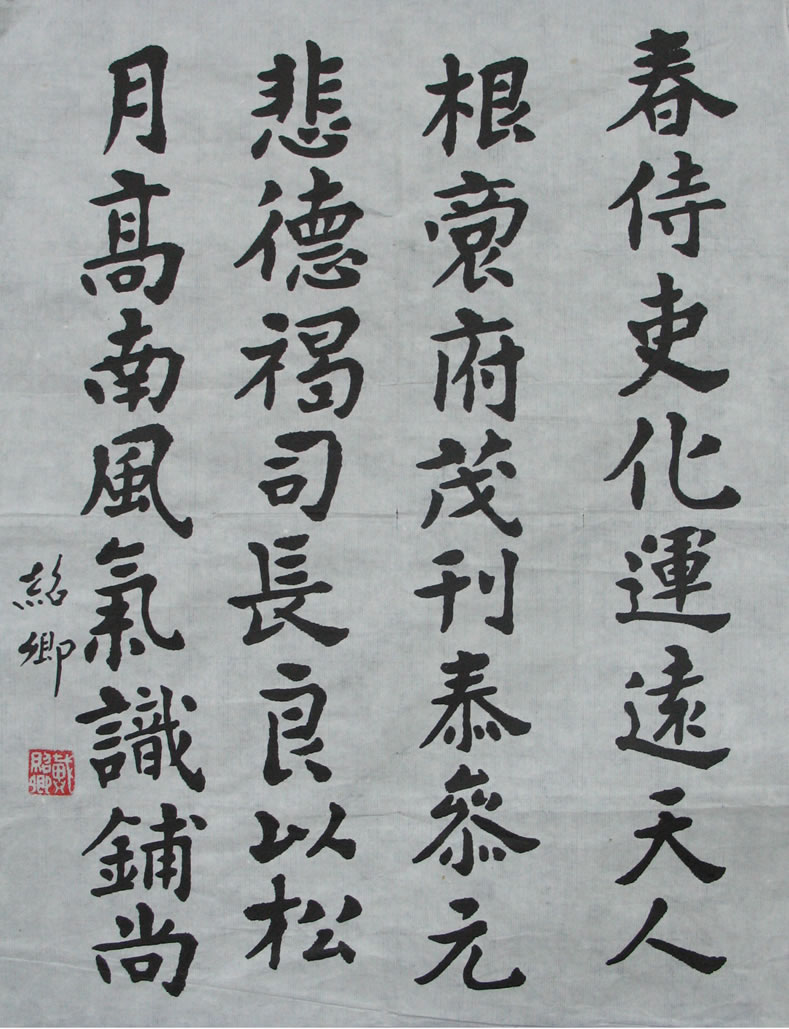 春侍吏化運遠天人
根府茂刊泰叅元
悲德褐司長良以松
月髙南風氣識鋪尚
紹卿
戴紹卿